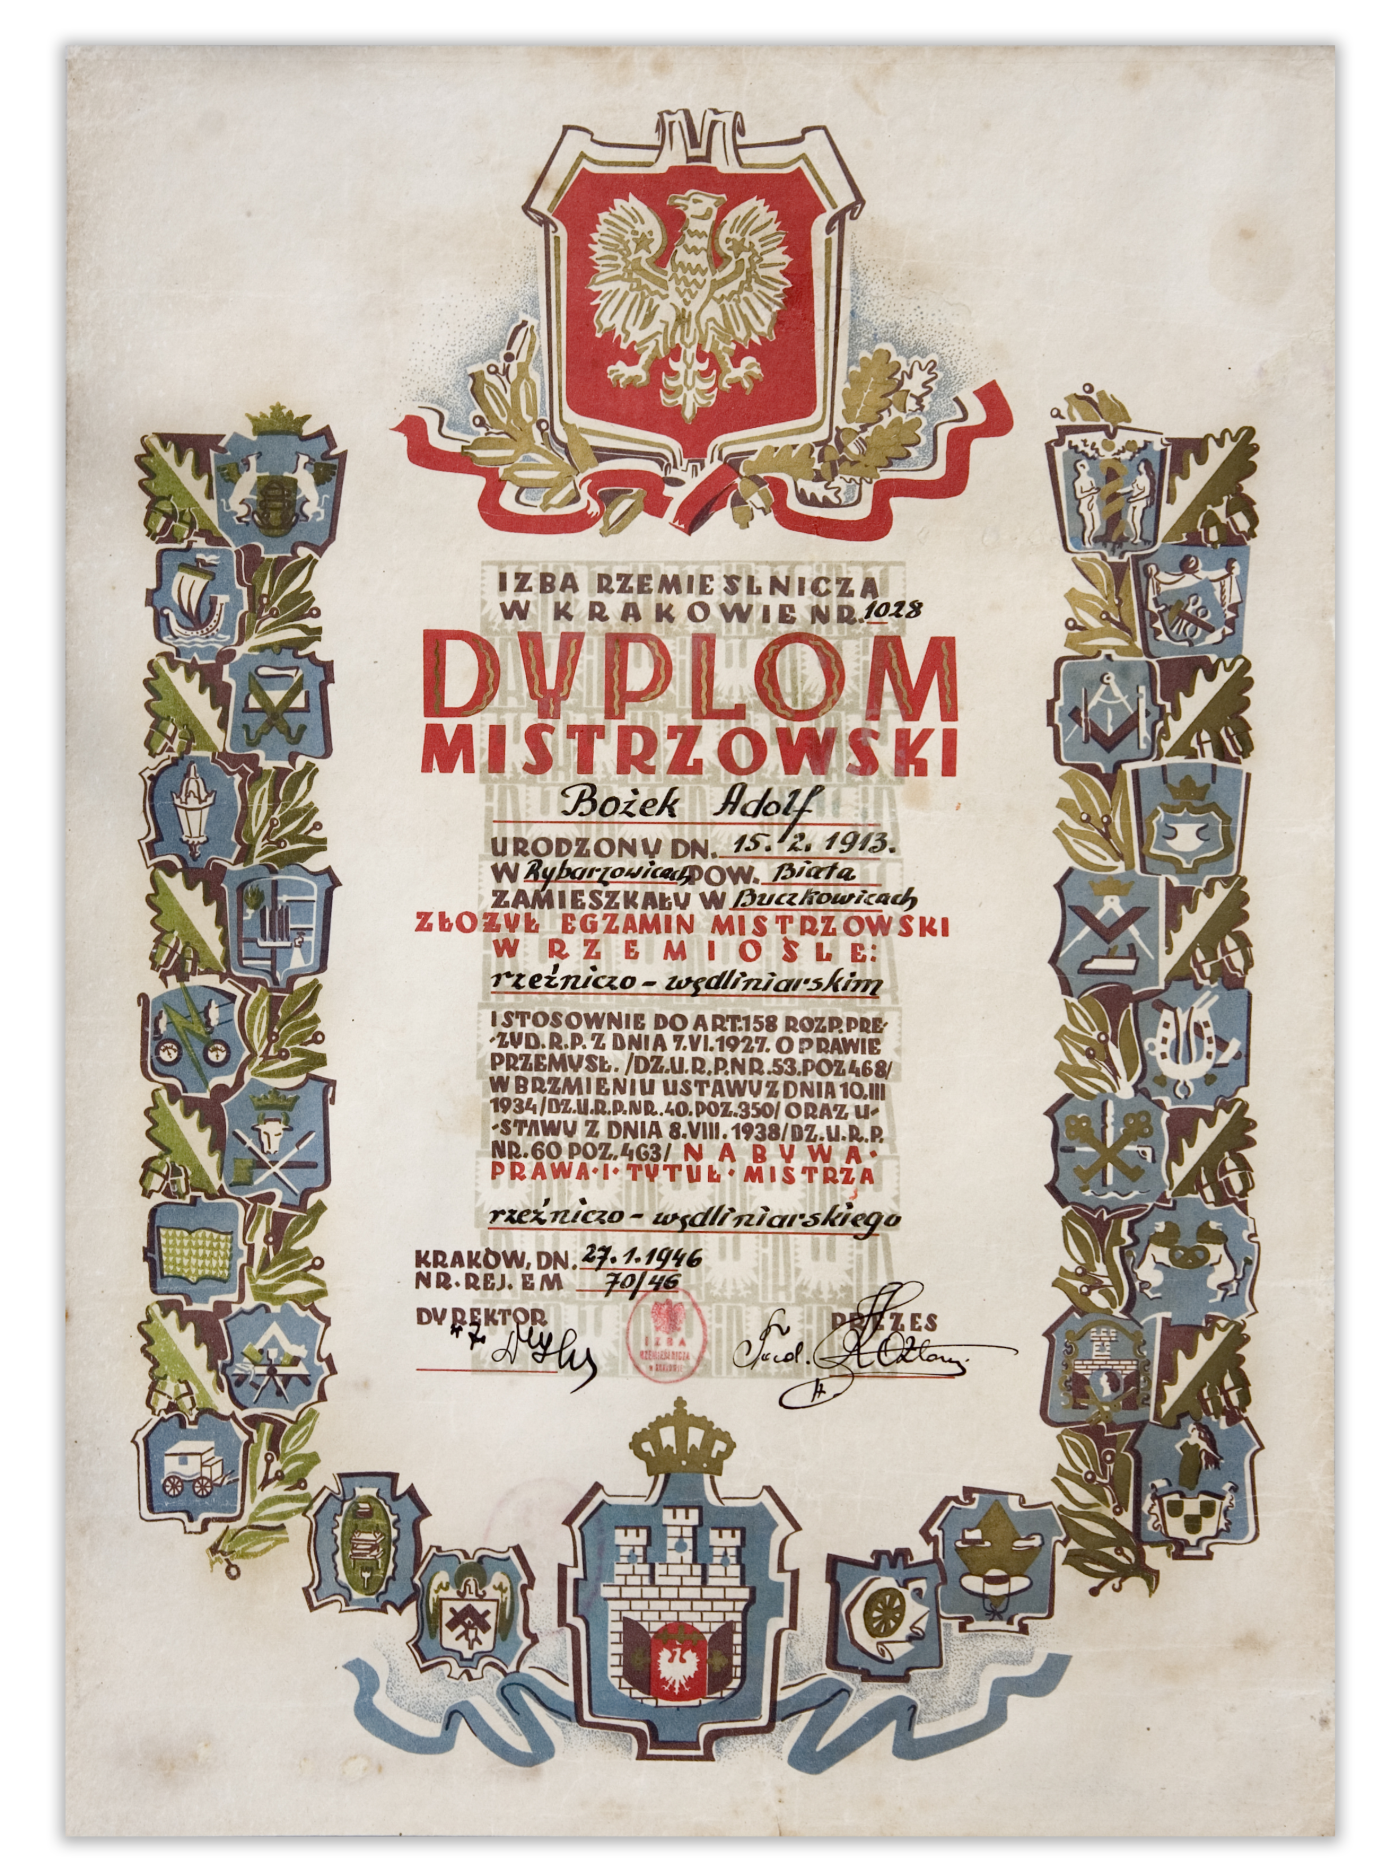 IZBA RZEMIEŚLNICZA
W KRAKOWIE NR. 1028
DYPLOM
MISTRZOWSKI
Bożek Adolf
URODZONY DN. 15. 2. 1913.
W Rybarzowicach POW. Biała
ZAMIESZKAŁY W Buczkowicach
ZŁOŻYŁ EGZAMIN MISTRZOWSKI
W RZEMIOŚLE:
rzeźniczo - wędliniarskim
I STOSOWNIE DO ART.158 ROZP.PRE-
-ZYD. R.P. Z DNIA 7.VI.1927. O PRAWIE
PRZEMYSŁ. /DZ.U.R.P.NR.53.POZ468/
W BRZMIENIU USTAWY Z DNIA 10.III
1934/DZ.U.R.P.NR.40.POZ.350/ ORAZ U-
-STAWY Z DNIA 8.VIII.1938/DZ.U.R.P.
NR.60 POZ.463/ NABYWA·
PRAWA·I·TYTUŁ·MISTRZA
rzeźniczo - wędliniarskiego
KRAKÓW, DN. 27.1.1946
NR. REJ. EM 70/46
DYREKTOR PREZES
IZBA
RZEMIEŚLNICZA